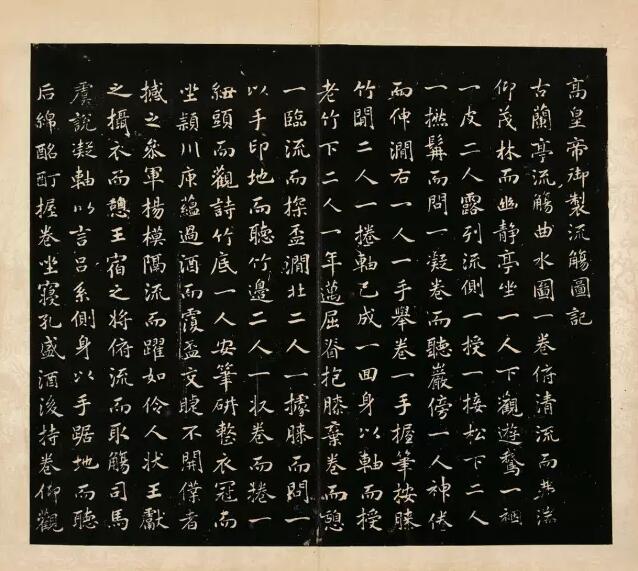 高皇帝御製流觴圖記
古蘭亭流觴曲水圖一卷俯清流而弗流
仰茂林而幽静亭坐一人下觀遊鵞一裀
一皮二人露列流側一授一接松下二人
一撚髯而問一凝卷而聽巖傍一人神倦
而伸澗右一人一手舉卷一手握筆按膝
竹閒二人一捲軸已成一回身以軸而授
老竹下二人一年邁屈脊抱膝棄卷而憩
一臨流而探盃澗北二人一據膝而問一
以手印地而聽竹邊二人一狀卷而捲一
紐頭而觀詩竹底一人安筆硏整衣冠而
坐潁川庾蘊過酒而覆盃交睫不開僕者
撼之叅軍楊模隔流而躍如伶人狀王獻
之攝衣而憩王宿之將俯流而取觴司馬
虞說凝軸以言吕系側身以手踞地而聽
后綿酩酊握卷坐寢孔盛酒後持卷仰觀